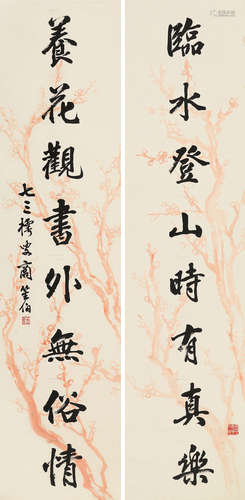 臨水登山時有真樂
養花觀書外無俗情
七三樗叟商笙伯